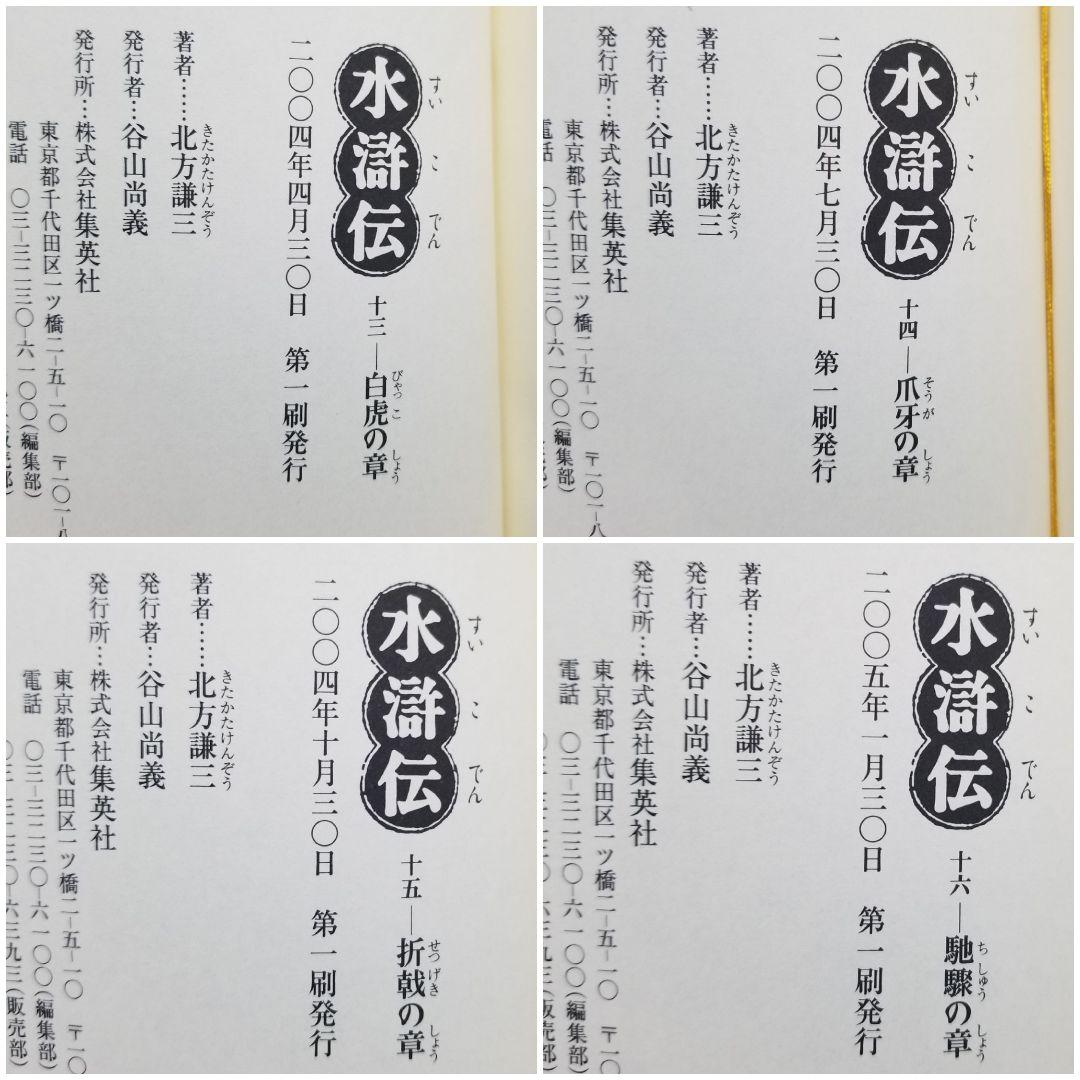 水滸伝
すいこでん
十三―白虎の章
びゃっこ しょう
二〇〇四年四月三〇日 第一刷発行
著者……北方謙三
きたかたけんぞう
発行者…谷山尚義
発行所…株式会社集英社
東京都千代田区一ツ橋二―五―一〇 〒一〇一―八
電話 〇三―三二三〇―六一〇〇(編集部)
水滸伝
すいこでん
十四―爪牙の章
そうが しょう
二〇〇四年七月三〇日 第一刷発行
著者……北方謙三
きたかたけんぞう
発行者…谷山尚義
発行所…株式会社集英社
東京都千代田区一ツ橋二―五―一〇 〒一〇一―八
電話 〇三―三二三〇―六一〇〇(編集部)
水滸伝
すいこでん
十五―折戟の章
せつげき しょう
二〇〇四年十月三〇日 第一刷発行
著者……北方謙三
きたかたけんぞう
発行者…谷山尚義
発行所…株式会社集英社
東京都千代田区一ツ橋二―五―一〇 〒一〇
電話 〇三―三二三〇―六一〇〇(編集部)
〇三―三二三〇―六三九三(販売部)
水滸伝
すいこでん
十六―馳驟の章
ちしゅう しょう
二〇〇五年一月三〇日 第一刷発行
著者……北方謙三
きたかたけんぞう
発行者…谷山尚義
発行所…株式会社集英社
東京都千代田区一ツ橋二―五―一〇 〒一〇
電話 〇三―三二三〇―六一〇〇(編集部)
〇三―三二三〇―六三九三(販売部)